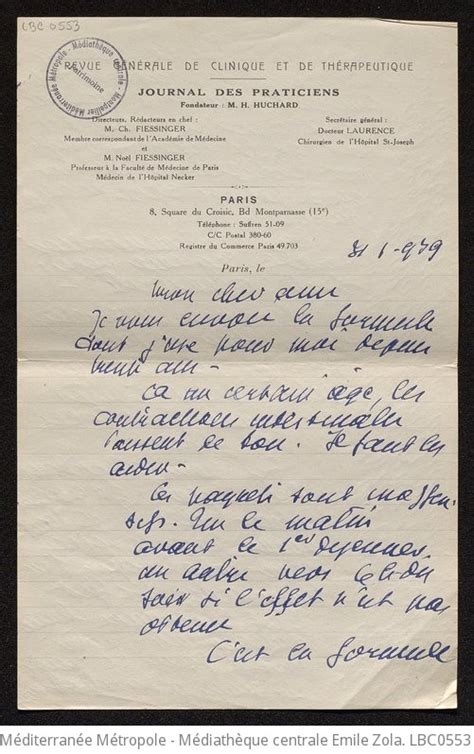 LBC 0553
Méditerranée Métropole - Médiathèque centrale - Montpellier
Patrimoine
REVUE GÉNÉRALE DE CLINIQUE ET DE THÉRAPEUTIQUE
JOURNAL DES PRATICIENS
Fondateur : M. H. HUCHARD
Directeurs, Rédacteurs en chef :
M. Ch. FIESSINGER
Membre correspondant de l'Académie de Médecine
et
M. Noël FIESSINGER
Professeur à la Faculté de Médecine de Paris
Médecin de l'Hôpital Necker
Secrétaire général :
Docteur LAURENCE
Chirurgien de l'Hôpital St-Joseph
PARIS
8, Square du Croisic, Bd Montparnasse (15e)
Téléphone : Suffren 51-09
C/C Postal 380-60
Registre du Commerce Paris 49.703
Paris, le
mon cher ami
Je vous envoie la formule
dont j'use pour moi depuis
ans -
a un certain âge, les
contractions intestinales
baissent de ton. Il faut les
aider -
Ces paquets sont inoffen-
sifs. Un le matin
avant le 1er déjeuner
un autre vers 6h du
soir si l'effet n'est pas
obtenu
C'est la formule
Méditerranée Métropole - Médiathèque centrale Emile Zola. LBC0553